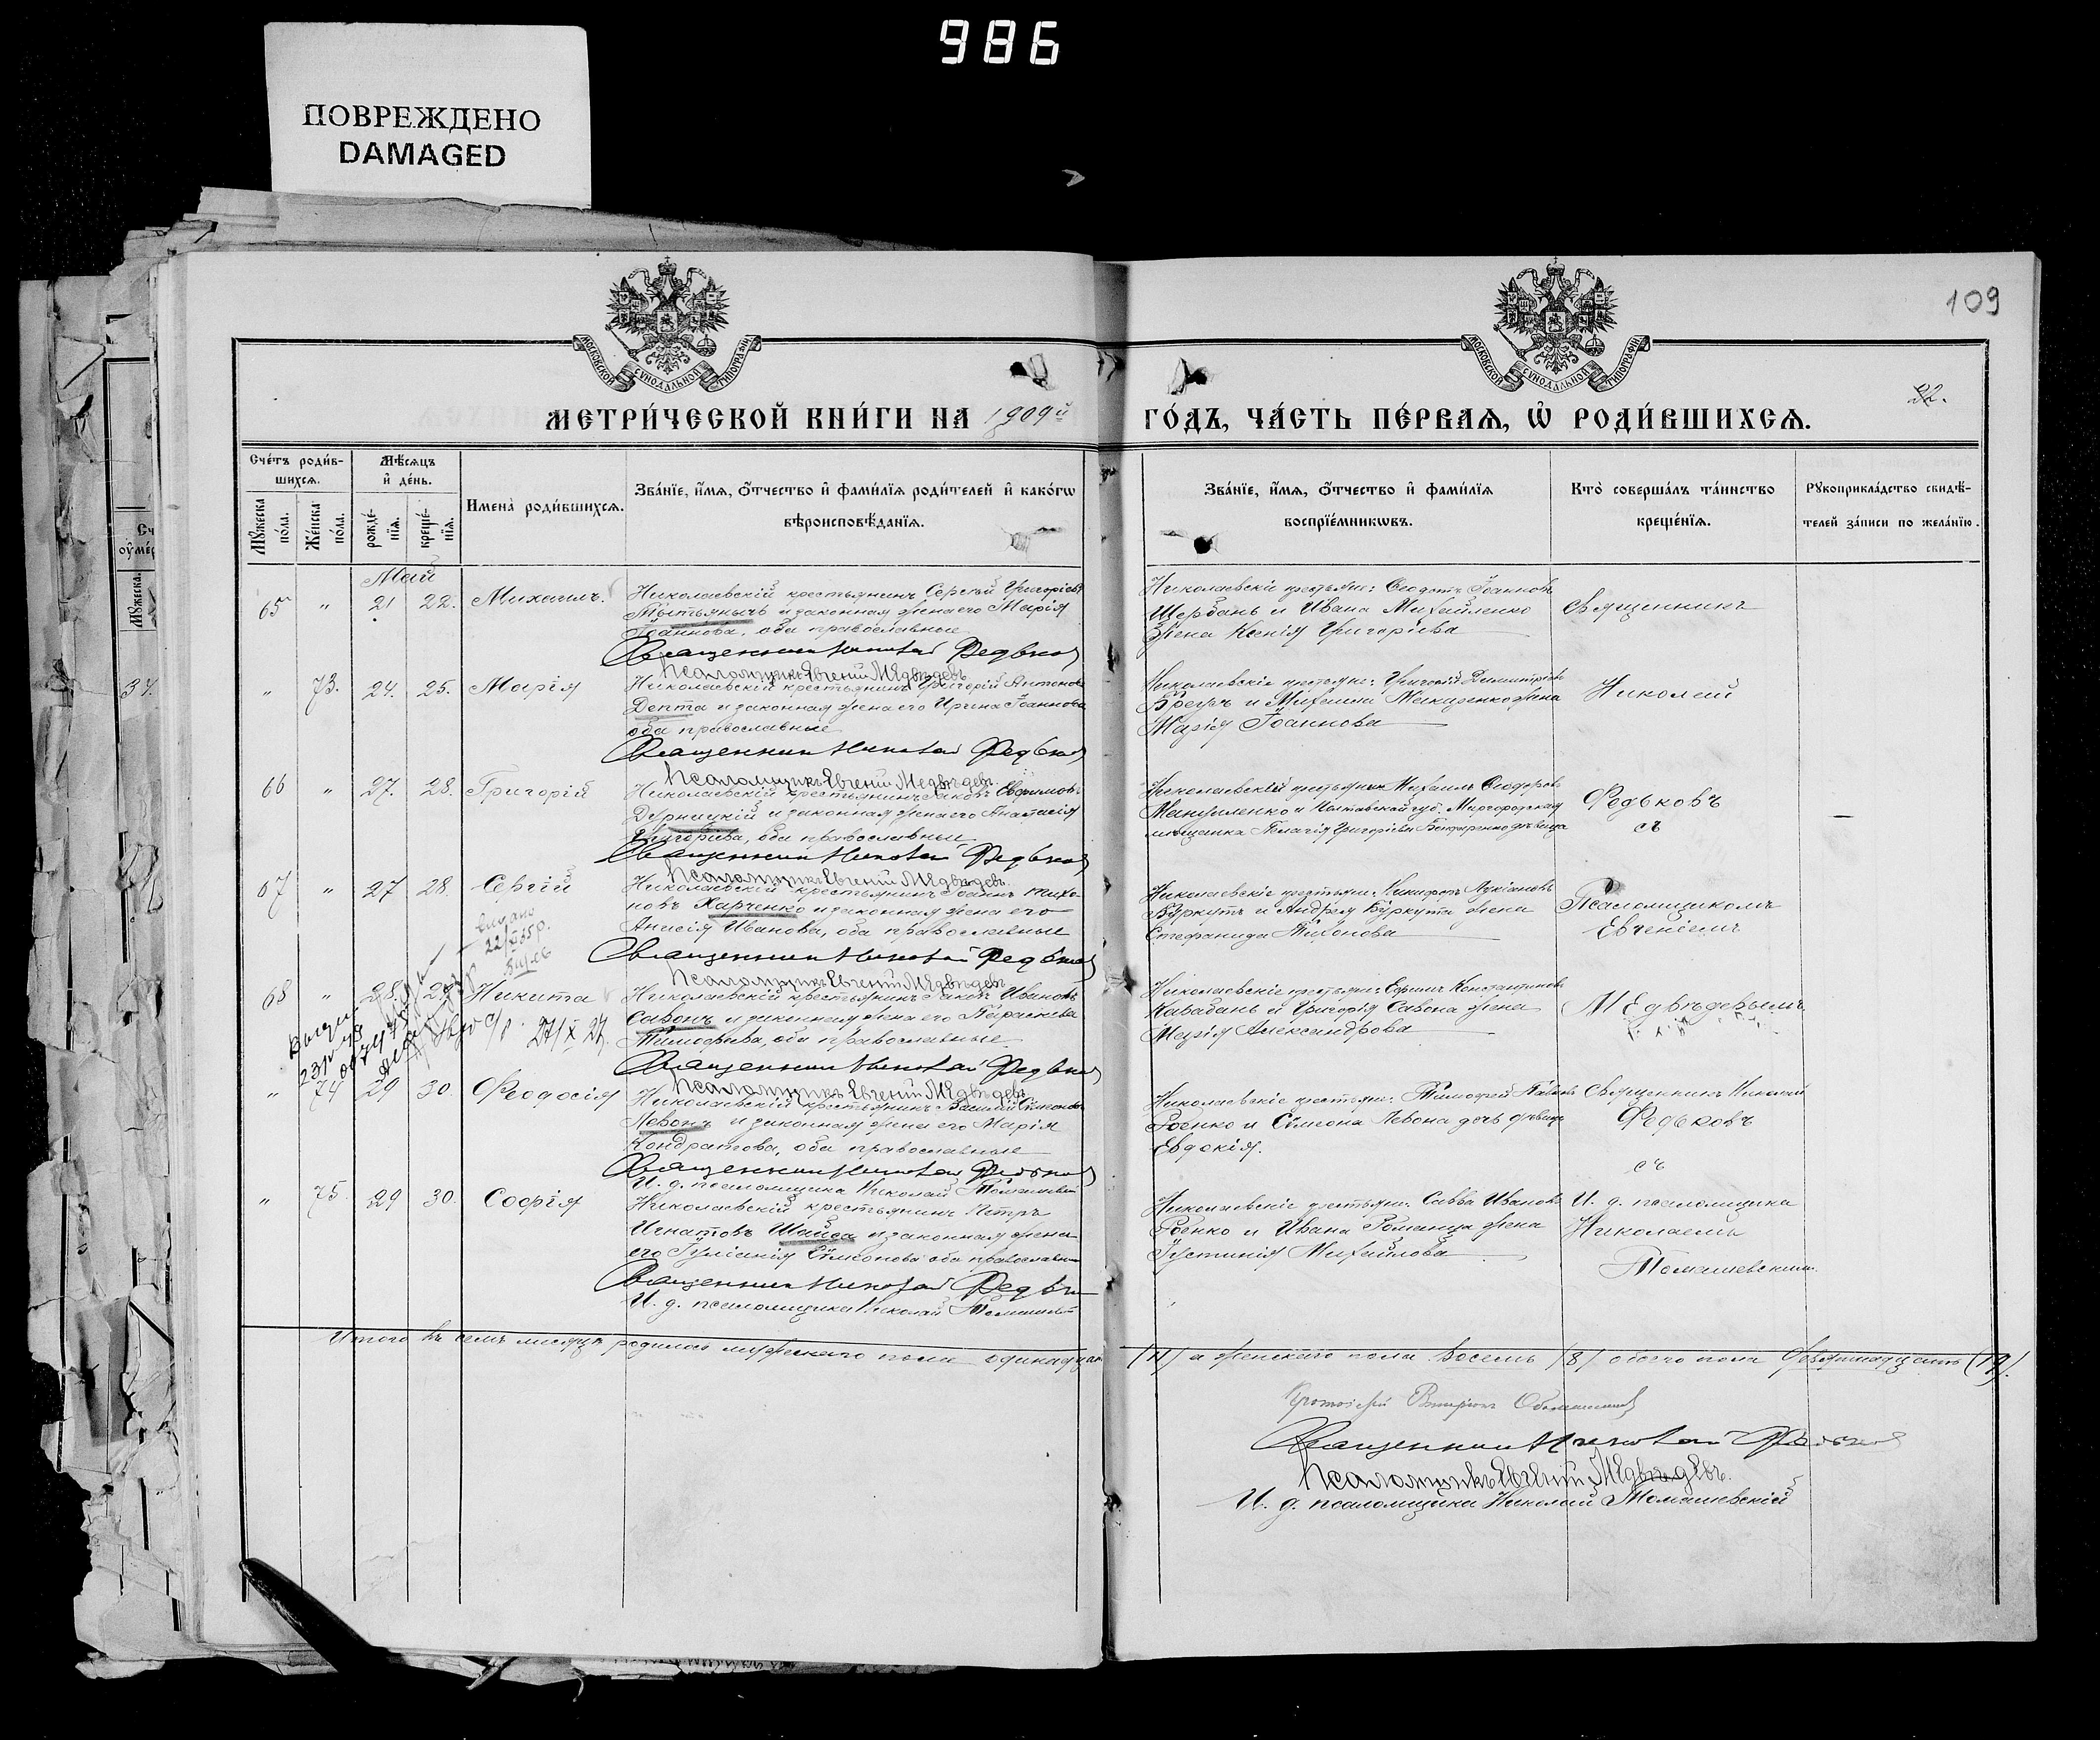 986
ПОВРЕЖДЕНО
DAMAGED
109
МОСКОВСКОЙ СѴНОДАЛЬНОЙ ТИПОГРАФІИ
МОСКОВСКОЙ СѴНОДАЛЬНОЙ ТИПОГРАФІИ
32.
МЕТРИ́ЧЕСКОЙ КНИ́ГИ НА 1909й ГО́ДЪ, ЧА́СТЬ ПЕ́РВАѦ, Ѡ҆ РОДИ́ВШИХСѦ.
Сче́тъ роди́в-
шихсѧ.
Мѣ́сѧцъ
и҆ де́нь.
Мꙋ́жеска
по́ла.
Же́нска
по́ла.
рожде́-
нїѧ.
креще́-
нїѧ.
Имена̀ роди́вшихсѧ.
Зва́нїе, и҆́мѧ, ѻ҆́тчество и҆ фами́лїѧ роди́телей и҆ како́гѡ
вѣроисповѣ́данїѧ.
Зва́нїе, и҆́мѧ, ѻ҆́тчество и҆ фами́лїѧ
воспрїе́мникѡвъ.
Кто̀ соверша́лъ та́инство
креще́нїѧ.
Рꙋкоприкла́дство свидѣ́-
телей за́писи по жела́нїю.
Май
65 " 21 22. Михаилъ.
Николаевскій крестьянинъ Сергѣй Григоріевъ
и законная жена его Марія
Іоаннова, оба православные
Священникъ Николай Федьковъ
Псаломщикъ Евгеній Медвѣдевъ
Николаевскіе крестьяне: Ѳеодотъ Іоанновъ
Щербань и Ивана Михайленко
жена Ксенія Григоріева
Священникъ
" 73. 24. 25. Марія
Николаевскій крестьянинъ Григорій Антоновъ
Депта и законная жена его Ирина Іоаннова
оба православные
Священникъ Николай Федьковъ
Псаломщикъ Евгеній Медвѣдевъ
Николаевскіе крестьяне: Григорій Димитріевъ
и Михаила жена
Марія Іоаннова
Николай
66 " 27. 28. Григорій
Николаевскій крестьянинъ Іаковъ Евфимовъ
и законная жена его Анастасія
Григорьева, оба православные
Священникъ Николай Федьковъ
Псаломщикъ Евгеній Медвѣдевъ
Николаевскій крестьянинъ Михаилъ Ѳеодоровъ
и Полтавской губ. Миргородская
мѣщанка Пелагія Григорьева дѣвица
Федьковъ
съ
67 " 27 28. Сергій
Николаевскій крестьянинъ Іоаннъ Тихо-
новъ Харченко и законная жена его
Анисія Иванова, оба православные
Священникъ Николай Федьковъ
Псаломщикъ Евгеній Медвѣдевъ
Николаевскіе крестьяне: Никифоръ Лукіановъ
Буркутъ и Андрея Буркута жена
Стефанида Тихонова
Псаломщикомъ
Евгеніемъ
68 " 28. 29. Никита
Николаевскій крестьянинъ Іаковъ Ивановъ
Савонъ и законная жена его Параскева
Тимофѣева, оба православные
Священникъ Николай Федьковъ
Псаломщикъ Евгеній Медвѣдевъ
Николаевскіе крестьяне: Ефремъ Константиновъ
Карабань и Григорія Савона жена
Марія Александрова
Медвѣдевымъ.
" 74 29 30. Ѳеодосія
Николаевскій крестьянинъ Василій Сѵмеоновъ
Левонъ и законная жена его Марія
Кондратова, оба православные
Священникъ Николай Федьковъ
И. д. псаломщика Николай Томашевскій
Николаевскіе крестьяне: Тимофей Павловъ
Роенко и Сѵмеона Левона дочь дѣвица
Евдокія.
Священникъ Николай
Федьковъ
съ
" 75. 29 30. Софія
Николаевскій крестьянинъ Петръ
Игнатовъ Шайда и законная жена
его Іуліанія Сѵмеонова оба православные
Священникъ Николай Федьковъ
И. д. псаломщика Николай Томашевскій
Николаевскіе крестьяне: Савва Ивановъ
Роенко и Ивана Романца жена
Іустинія Михайлова
И. д. псаломщика
Николаемъ
Томашевскимъ.
Итого въ семъ мѣсяцѣ родилось мужескаго пола одинадцать /11/ а женскаго пола восемь /8/ обоего пола девятнадцать (19).
Священникъ Николай Федьковъ
Псаломщикъ Евгеній Медвѣдевъ.
И. д. псаломщика Николай Томашевскій
34.